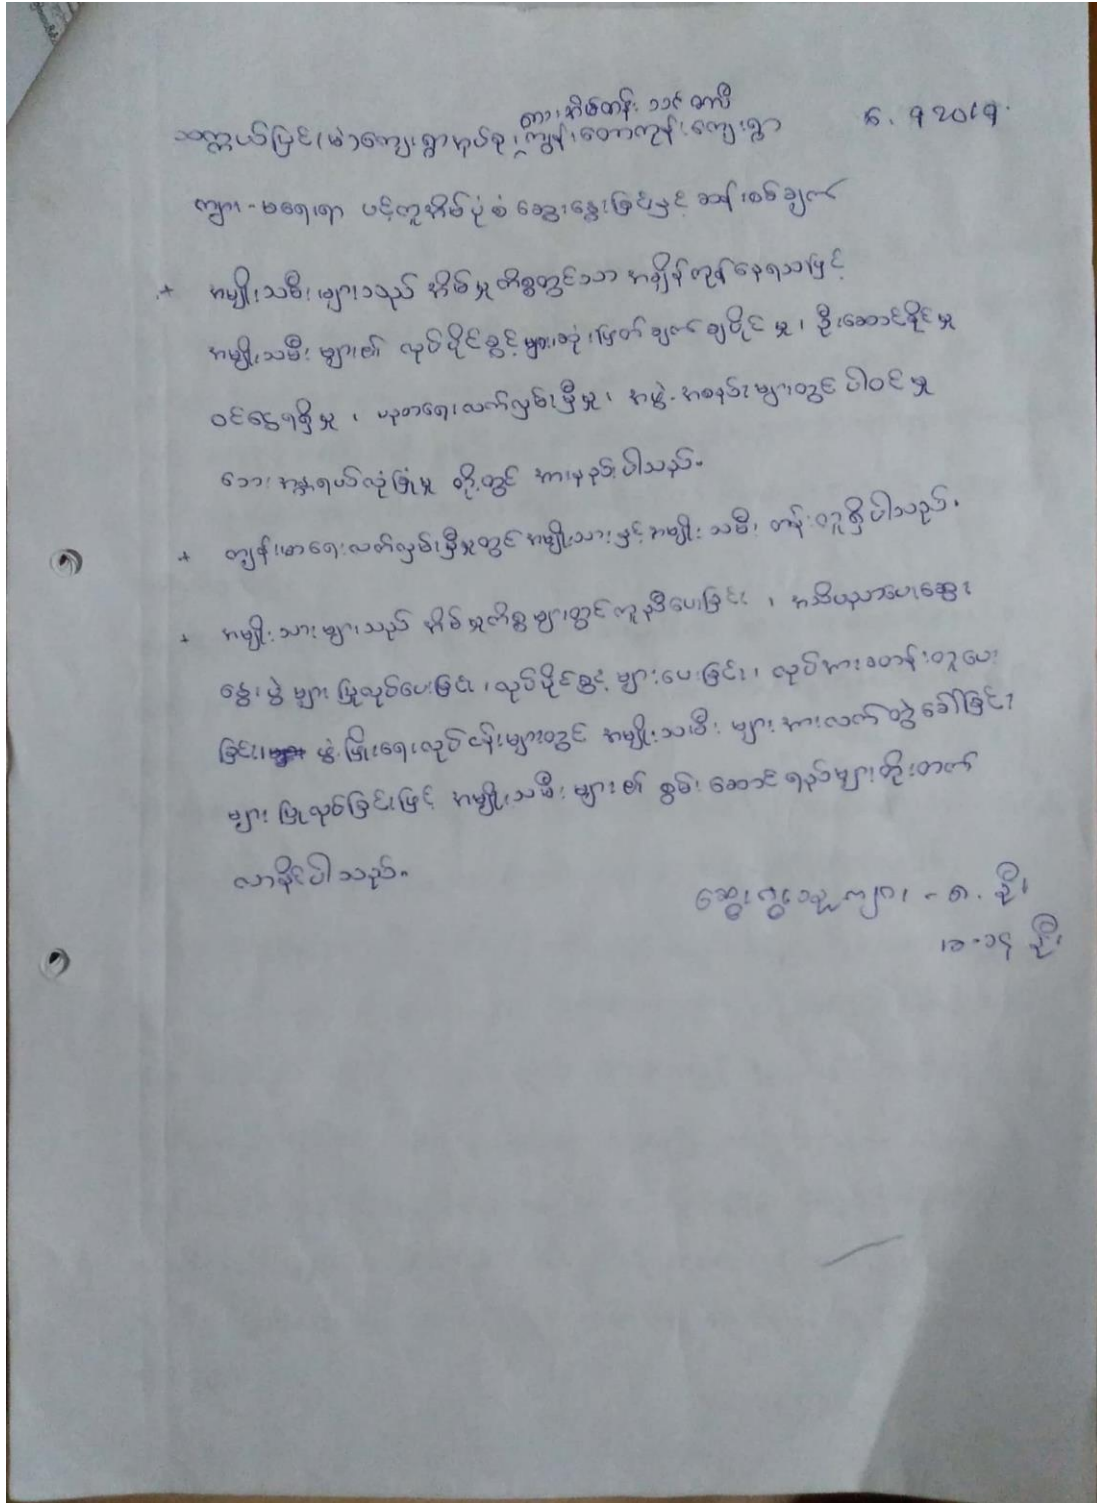 တားအိမ်တန်း ၁၁၉
သက္ကယ်ပြင်(မဲ)ကျေးရွာအုပ်စု၊ ကျွန်းတောကုန်းကျေးရွာ 6. 9 2019.
ကျား-မရေးရာ ပင့်ကူအိမ်ပုံစံ ဆွေးနွေးခြင်းနှင့် ဆန်းစစ်ချက်
+ အမျိုးသမီးများသည် အိမ်မှုကိစ္စတွင်သာ အချိန်ကုန်နေရသဖြင့်
အမျိုးသမီးများ၏ လုပ်ပိုင်ခွင့်များ၊ ဆုံးဖြတ်ချက်ချပိုင်မှု ၊ ဦးဆောင်နိုင်မှု
ဝင်ငွေရရှိမှု ၊ ပညာရေးလက်လှမ်းမှီမှု ၊ အဖွဲ့အစည်းများတွင် ပါဝင်မှု
ဘေးအန္တရယ်လုံခြုံမှု တို့တွင် အားနည်းပါသည်။
+ ကျန်းမာရေးလက်လှမ်းမှီမှုတွင် အမျိုးသားနှင့်အမျိုးသမီး တန်းတူရှိပါသည်။
+ အမျိုးသားများသည် အိမ်မှုကိစ္စများတွင်ကူညီပေးခြင်း ၊ အသိပညာပေးဆွေး
နွေးပွဲများ ပြုလုပ်ပေးခြင်း ၊ လုပ်ပိုင်ခွင့်များပေးခြင်း ၊ လုပ်အားခတန်းတူပေး
ခြင်း၊ ဖွံ့ဖြိုးရေးလုပ်ငန်းများတွင် အမျိုးသမီးများအားလက်တွဲခေါ်ခြင်း
များ ပြုလုပ်ခြင်းဖြင့် အမျိုးသမီးများ၏ စွမ်းဆောင်ရည်များတိုးတက်
လာနိုင်ပါသည်။
ဆွေးနွေးသူ ကျား - ၈ ဦး
မ - ၁၄ ဦး